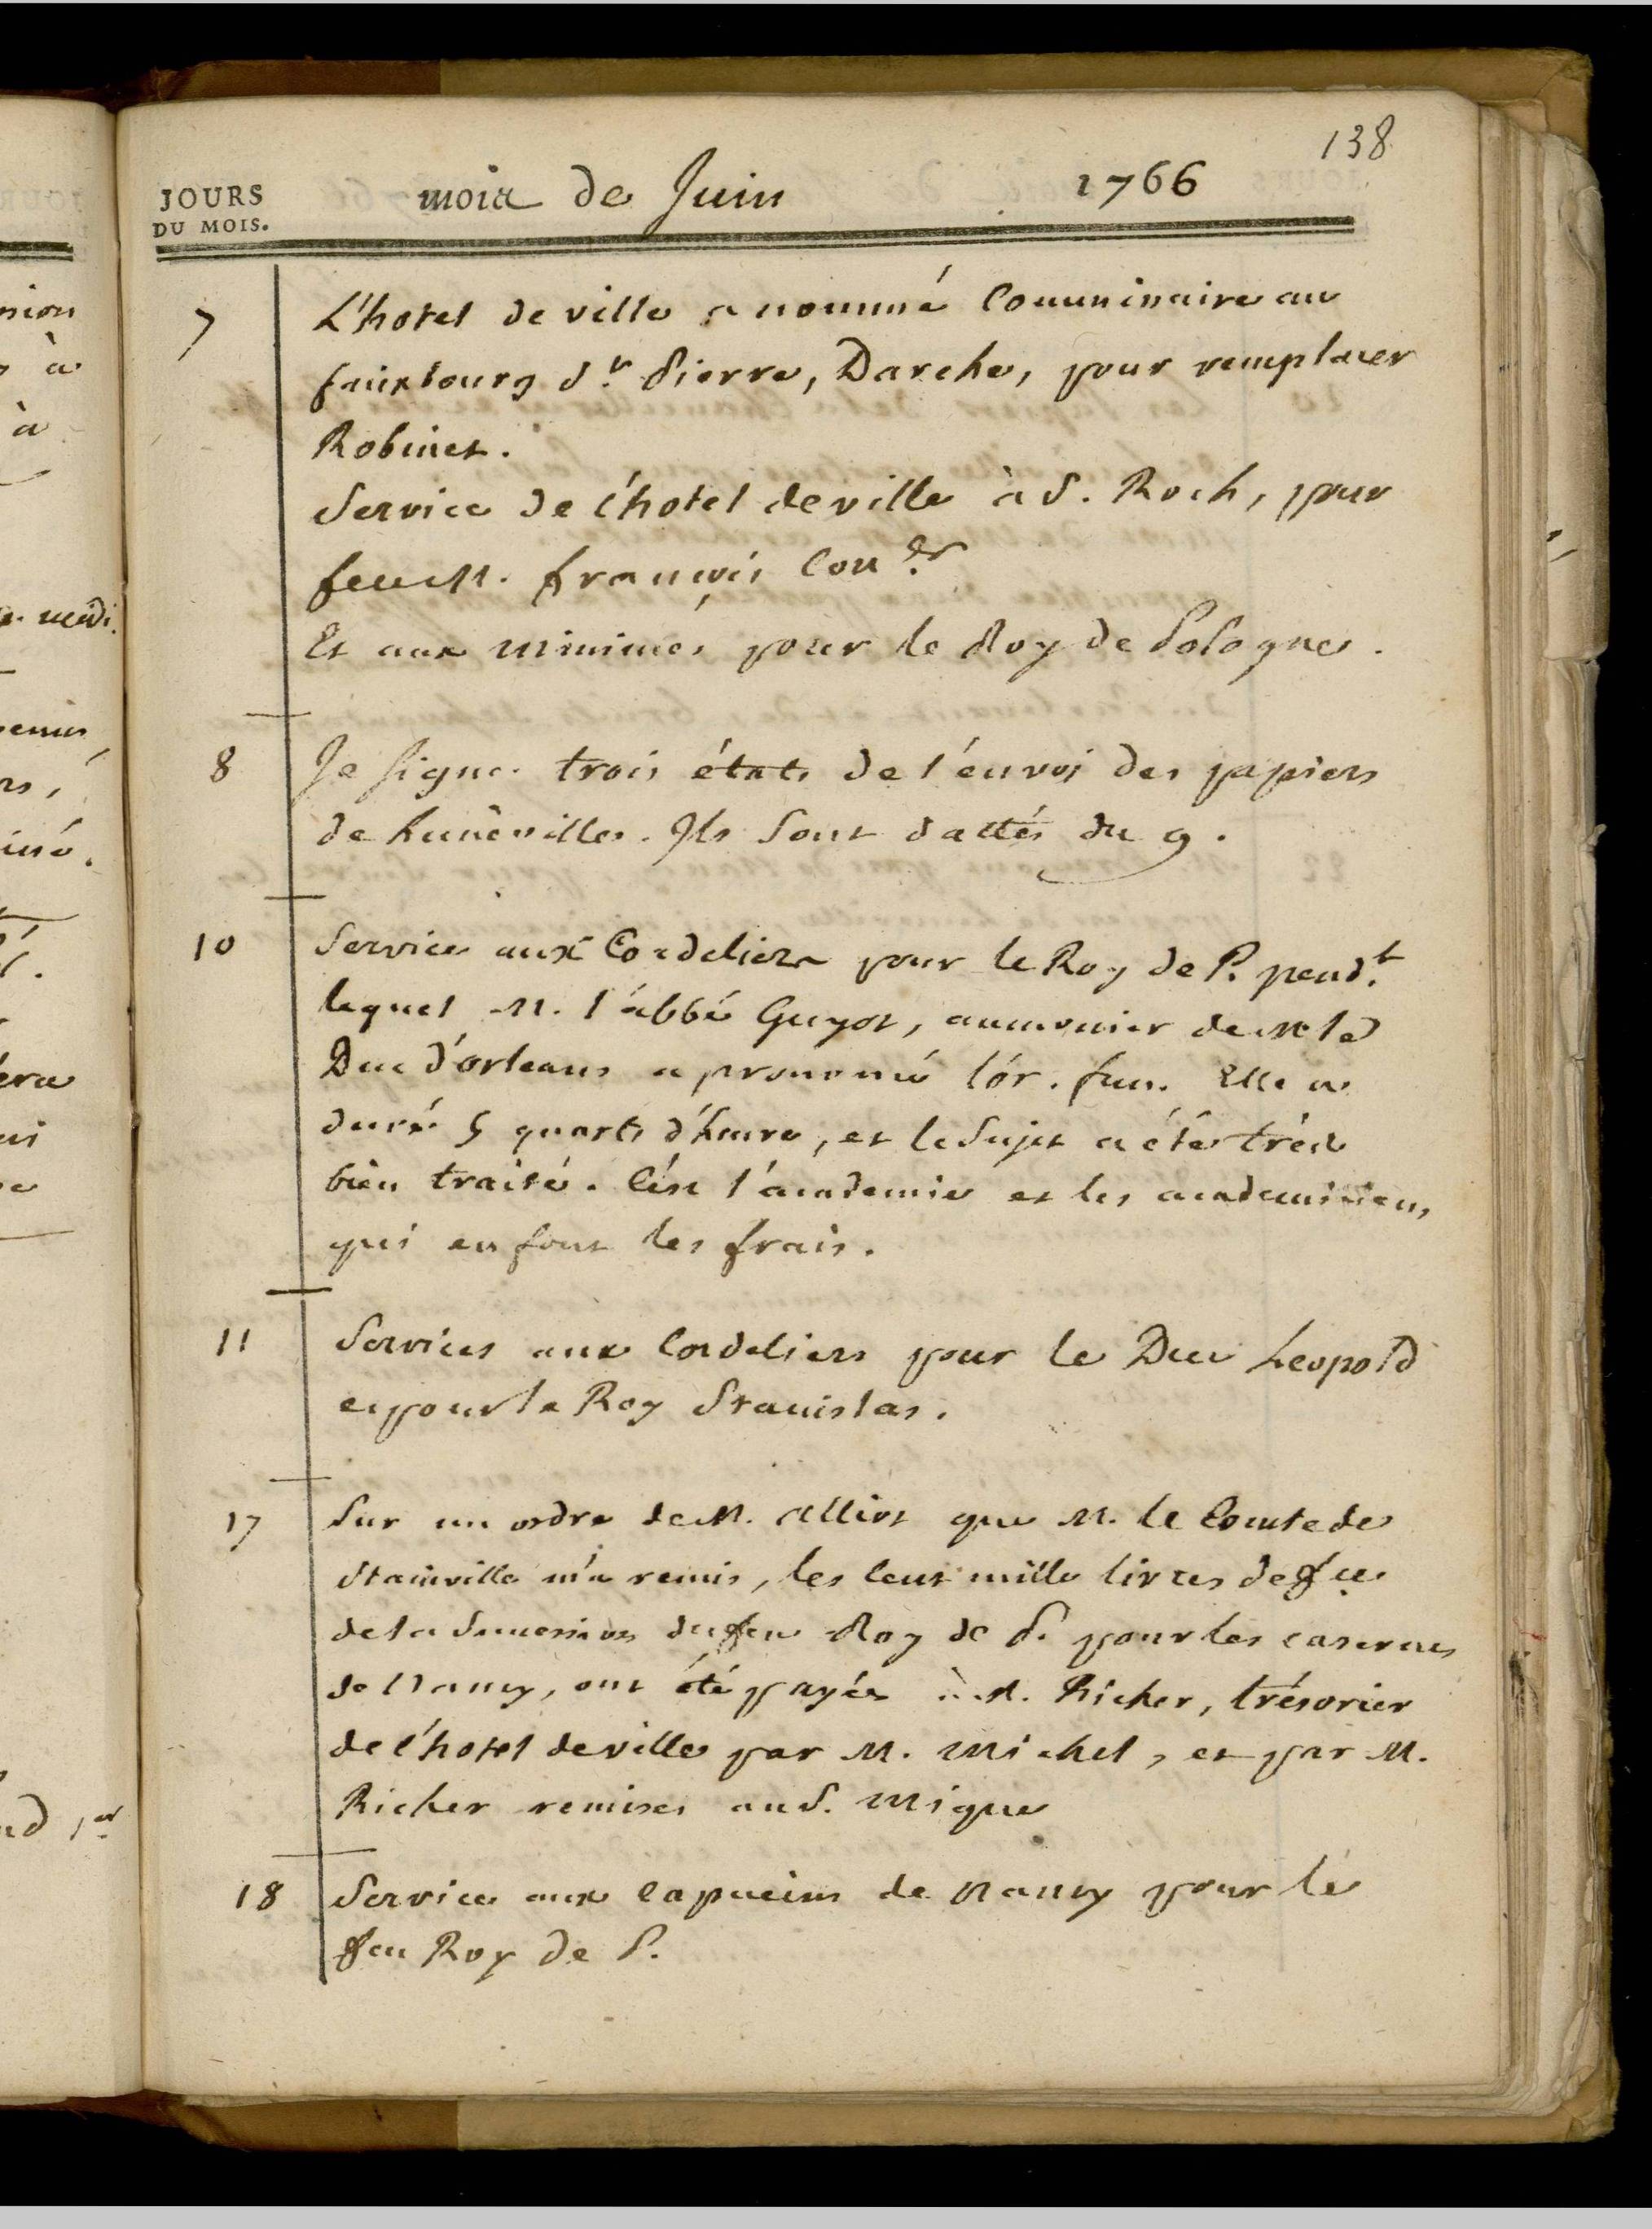 138
JOURS
DU MOIS.
mois de Juin 1766
7 L'hotel de ville a nommé Commissaire au
fauxbourg St Pierre, Darche, pour remplacer
Robinet.
Service de l'hotel de ville à S. Roch, pour
feu M. françois Con.er
Et aux minimes pour le Roy de Pologne.
8 Je signe trois états de l'envoi des papiers
de Lunéville. Ils sont dattés du 9.
10 Service aux Cordeliers pour le Roy de P. pend.t
lequel M. l'abbé Guyot, aumonier de M. le
Duc d'orleans a prononcé l'or. fun. Elle a
duré 5 quarts d'heure, et le sujet a été très
bien traité. C'est l'academie et les academiciens
qui en font les frais.
11 Services aux Cordeliers pour le Duc Leopold
et pour le Roy Stanislas.
17 Sur un ordre de M. Alliot que M. le Comte de
Stainville m'a remis, les cent mille livres de fce
de la succession du feu Roy de P. pour les casernes
de Nancy, ont été payées à M. Richer, trésorier
de l'hotel de ville par M. Michel, et par M.
Richer remises au S. Mique
18 Service aux Capucins de Nancy pour le
feu Roy de P.